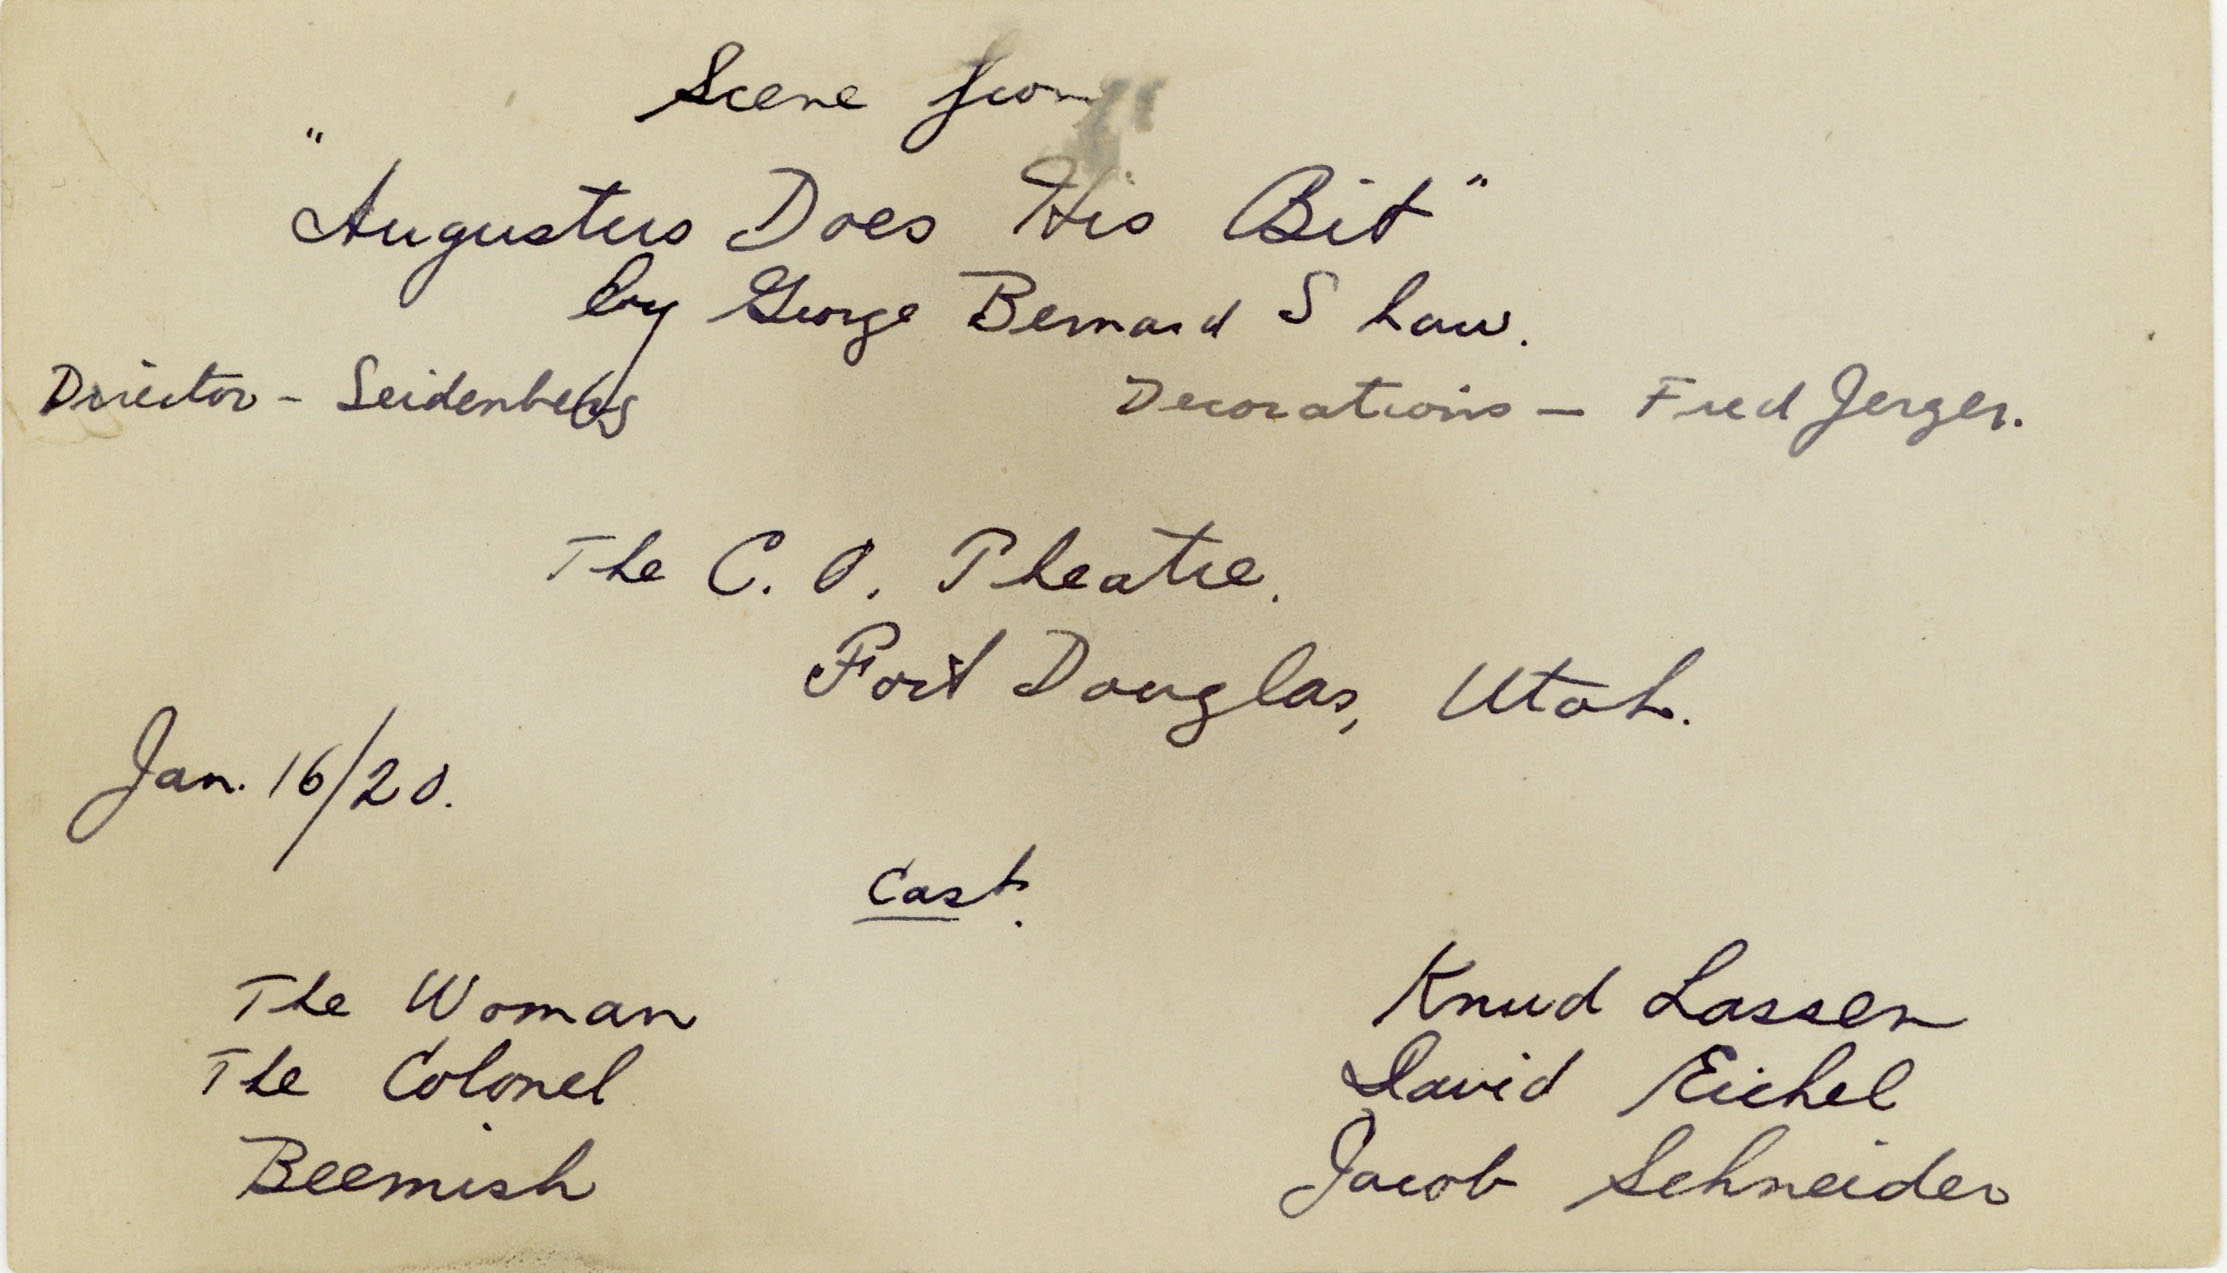 Scene from
"Augustus Does His Bit"
by George Bernard Shaw.
Director - Seidenberg Decorations - Fred Jerger.
The C. O. Theatre.
Fort Douglas, Utah.
Jan. 16/20.
Cast.
The Woman Knud Lassen
The Colonel David Eichel
Beemish Jacob Schneider